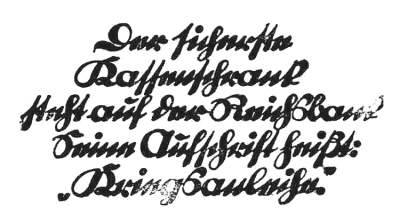 Der sicherste
Kassenschrank
steht auf der Reichsbank
Seine Aufschrift heißt:
„Kriegsanleihe“